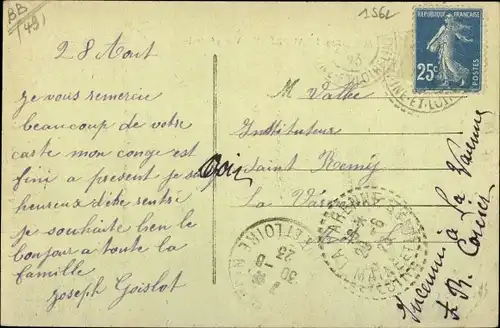 BB
(49)
1562
28 Aout
je vous remercie
beaucoup de votre
carte mon conge est
fini a present je suis
heureux d'être rentré
je souhaite ben le
bonjour a toute la
famille
Joseph Goislot
REPUBLIQUE FRANÇAISE
25c
POSTES
M Vallée
Instituteur
Saint Remy
La Varenne
Inconnu à La Varenne
ET-LOIRE
30 -8
23
LA VARENNE
MAINE